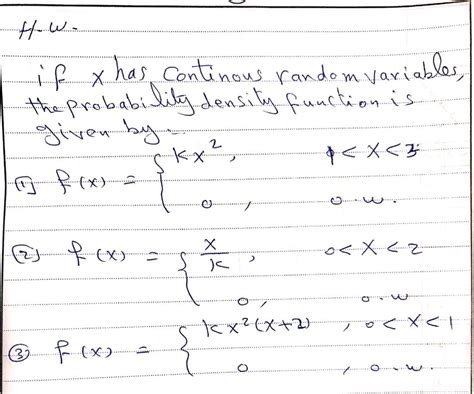 H.W.
if x has continous random variables,
the probability density function is
given by:
(1) f(x) = { kx², 1 < x < 3
0, o.w.
(2) f(x) = { x/k, 0 < x < 2
0, o.w
(3) f(x) = { kx²(x+2), 0 < x < 1
0, o.w.